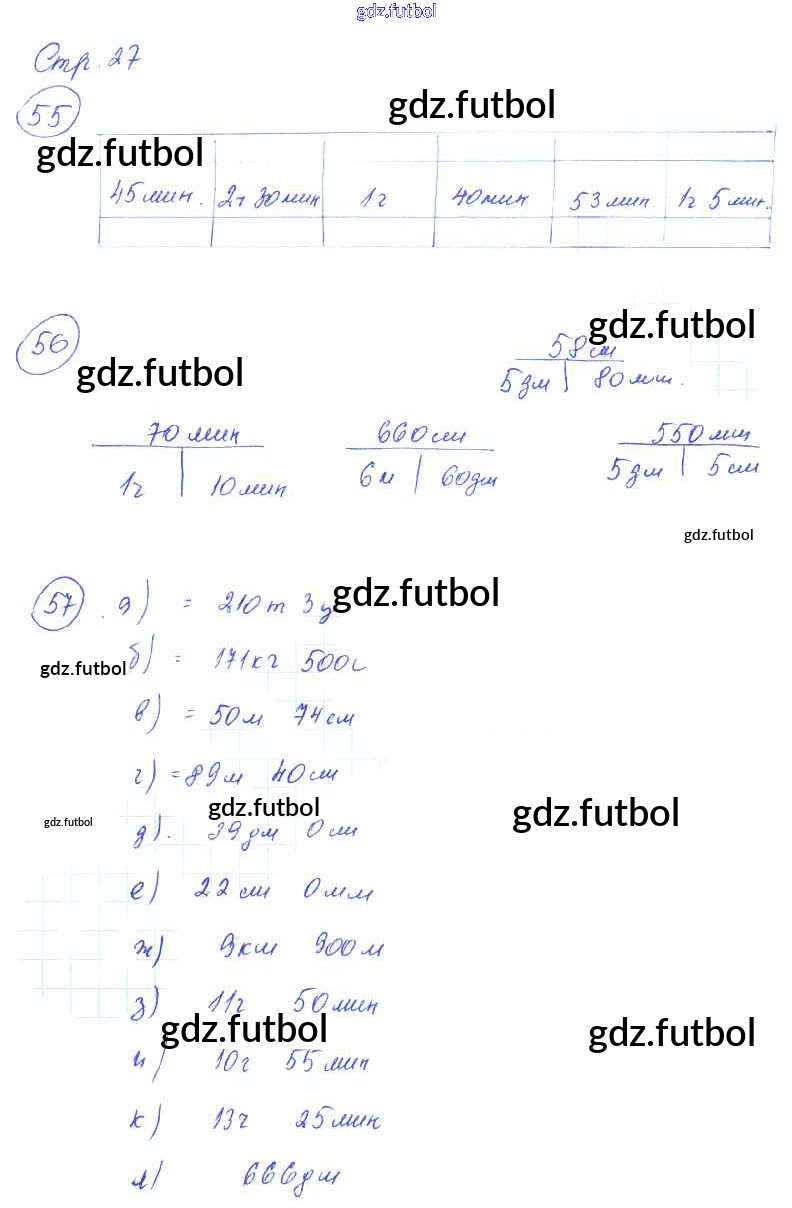 gdz.futbol
Стр. 27
55
gdz.futbol
gdz.futbol
45 мин. 2ч 30 мин 1ч 40 мин 53 мин 1ч 5 мин.
56
gdz.futbol
gdz.futbol
58 см
5 дм 80 мм.
70 мин 660 см 550 мм
1ч 10 мин 6м 60 дм 5 дм 5 см
gdz.futbol
57. а) = 210 т 3 ц gdz.futbol
gdz.futbol б) = 171 кг 500
в) = 50 м 74 см
г) = 89 м 40 см
gdz.futbol gdz.futbol
gdz.futbol д). 39 дм 0 см
е) 22 см 0 мм
ж) 9 км 900 м
з) 11ч 50 мин
gdz.futbol gdz.futbol
и) 10ч 55 мин
к) 13ч 25 мин
л) 666 дм